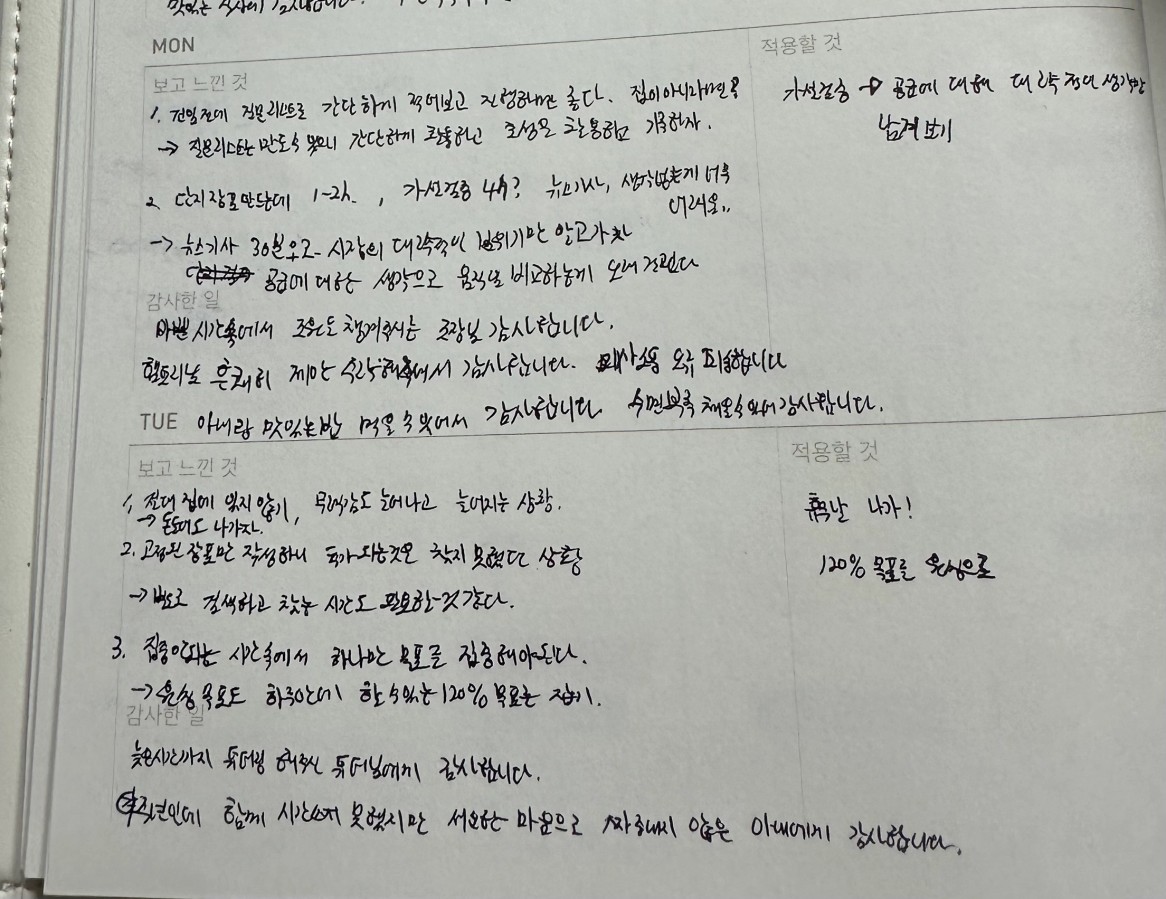 맛있는 식사에 감사합니다.
MON
적용할 것
보고 느낀 것
1. 전임전에 질문리스트로 간단하게 적어보고 진행하면 좋다. 집이아니라면
→ 질문리스트는 만도식 간단하게 활용하고 조성을 활용하고 기록하자.
가설검증 → 공급에 대해 대략적인 생각만
남겨보기
2. 단지장표만드는데 1-2h. , 가설검증 4h? 뉴스기사, 생각남는게 너무
어려움..
→ 뉴스기사 30분으로 시장의 대략적인 분위기만 알고가자
공급에 대한 생각으로 움직임 비교하는게 오래걸린다
감사한 일
바쁜 시간속에서 조원도 챙겨주시는 조장님 감사합니다.
흔쾌히 제안 수락해주셔서 감사합니다.
TUE 아내랑 맛있는밥 먹을 수 있어서 감사합니다 수면부족 채울수있어 감사합니다.
보고 느낀 것
적용할 것
1. 절대 집에 있지 않기, 무력감도 늘어나고 늘어지는 상황.
→ 돈들어도 나가자.
휴무날 나가!
2. 고정된 장표만 작성하니 추가되는것은 찾지 못했던 상황
→ 별도로 검색하고 찾는 시간도 필요한 것 같다.
120% 목표를 원씽으로
3. 집중안되는 시간속에서 하나만 목표를 집중해야된다.
→ 원씽 목표도 하루안에 할 수 있는 120% 목표로 잡기.
감사한 일
늦은시간까지 튜터링 해주신 튜터님에게 감사합니다.
주년인데 함께 시간쓰지 못했지만 서운한 마음으로 짜증내지 않은 아내에게 감사합니다.